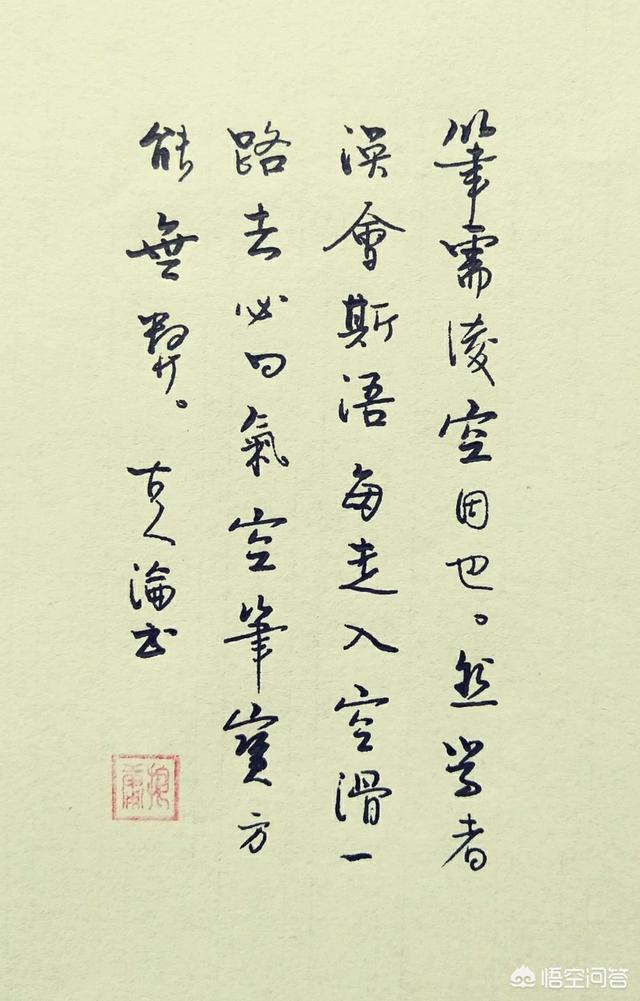 筆需凌空固也。然学者
誤會斯語每走入空滑一
路去必曰氣空筆實方
能無弊。古人論书
悟空问答